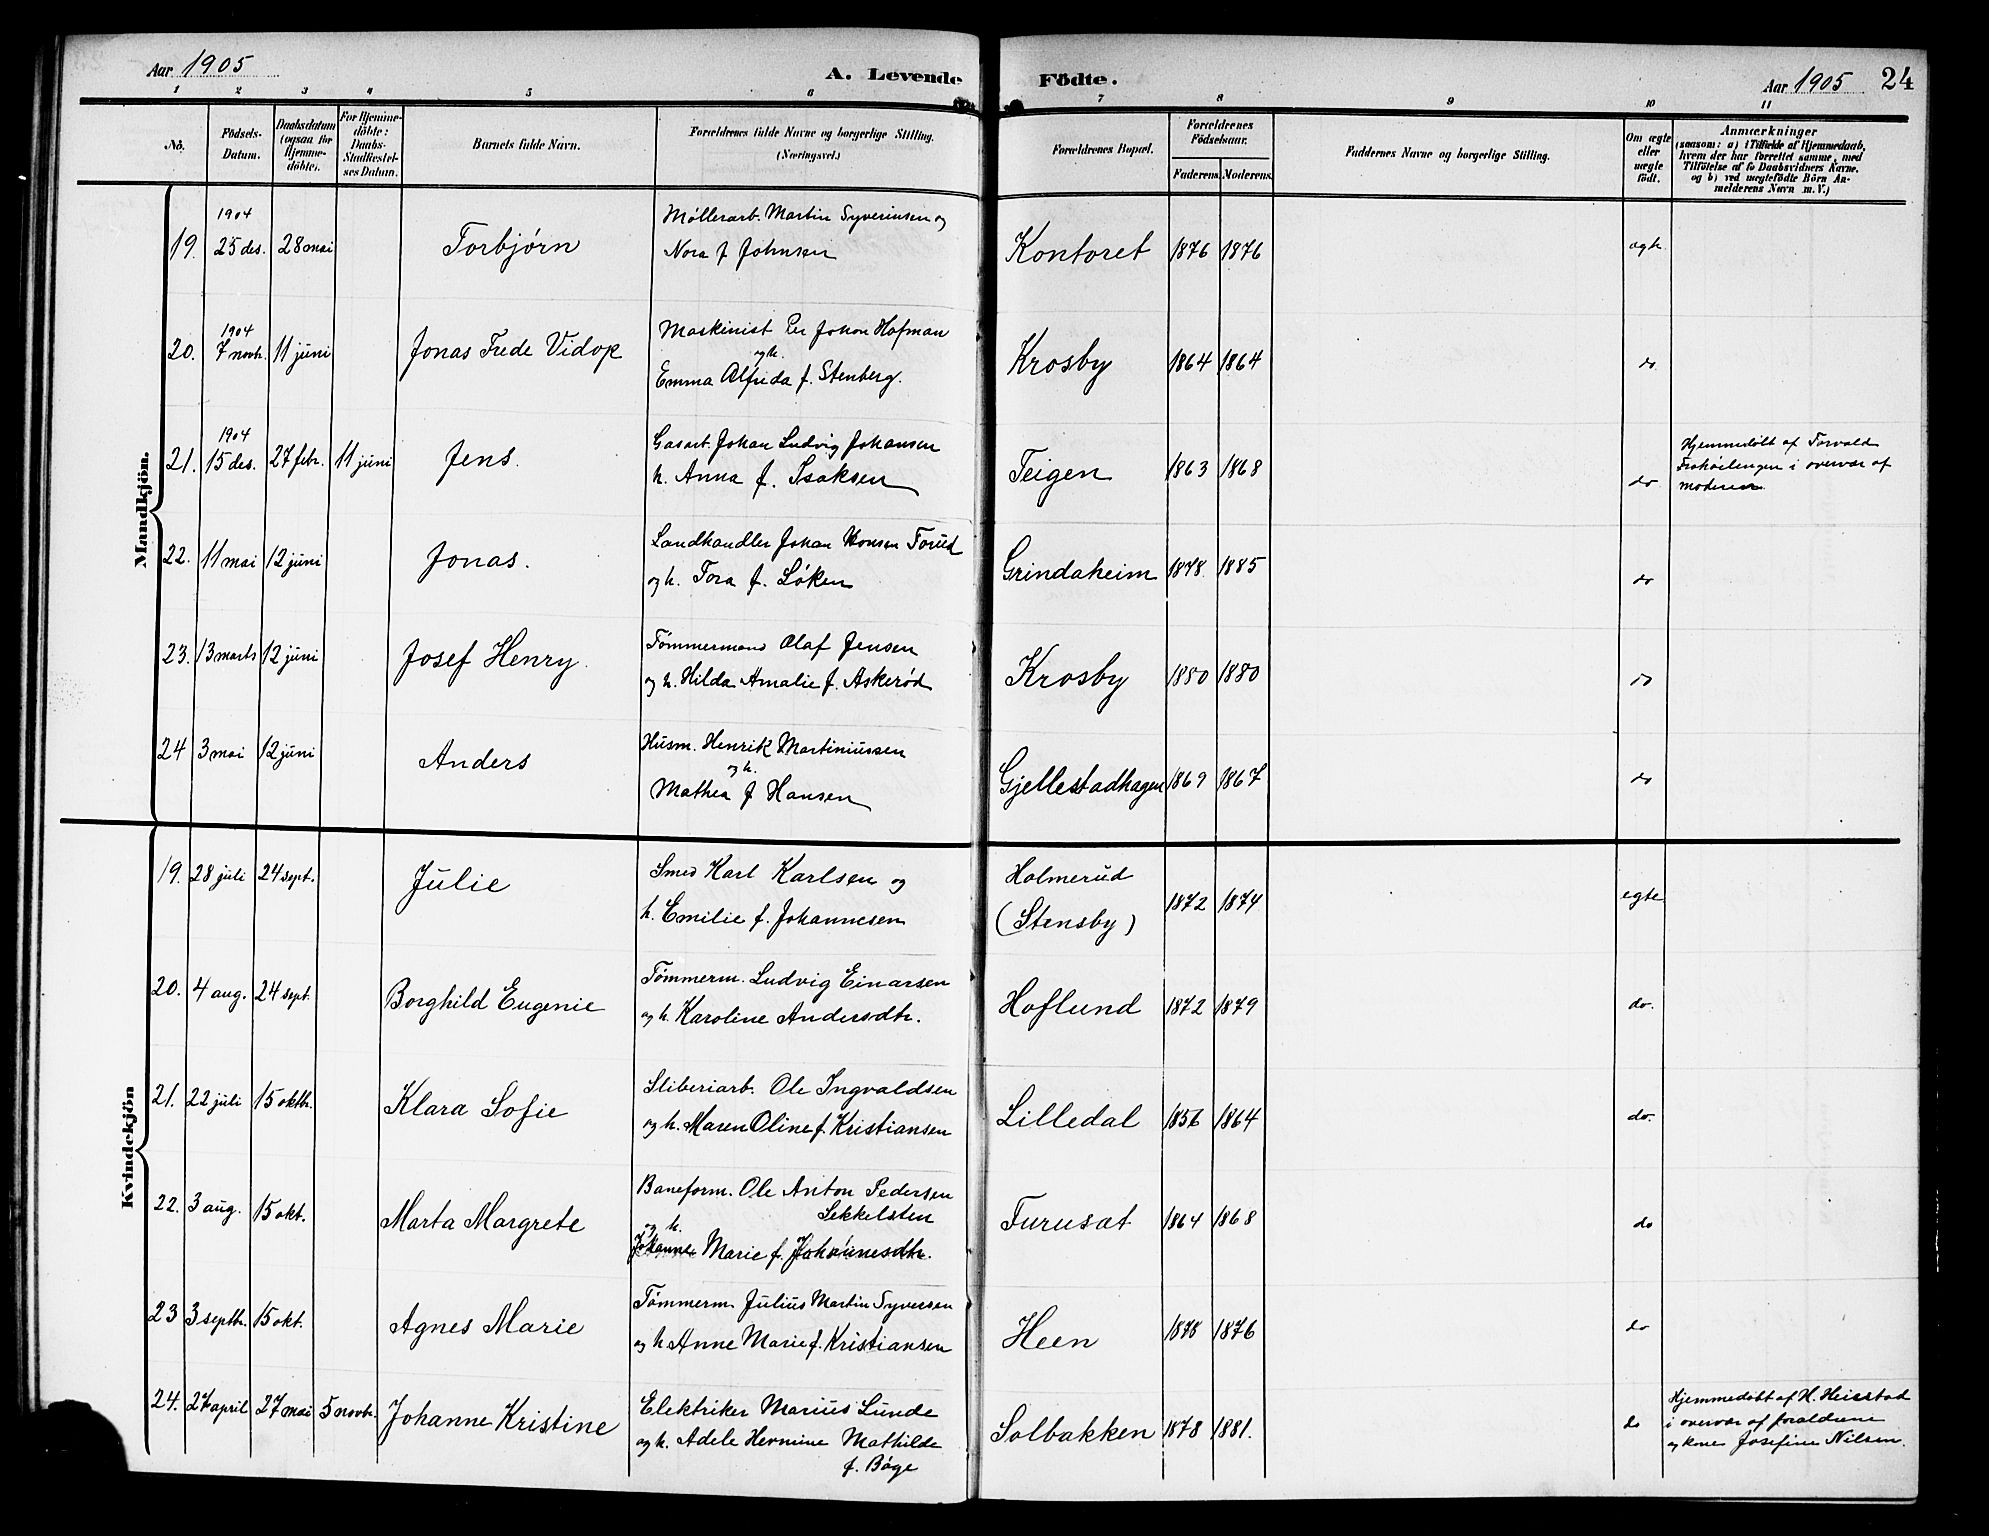 Aar 1905
A. Levende Födte.
Aar 1905
24
1 2 3 4 5 6 7 8 9 10 11
No.
Födsels-Datum.
Daabsdatum (ogsaa for Hjemme-döbte).
For Hjemme-döbte: Daabs-Stadfæstel-ses Datum.
Barnets fulde Navn.
Forældrenes fulde Navne og borgerlige Stilling. (Næringsvei.)
Forældrenes Bopæl.
Forældrenes Födselsaar.
Faderens. Moderens.
Faddernes Navne og borgerlige Stilling.
Om ægte eller uægte födt.
Anmærkninger
(saasom: a) i Tilfælde af Hjemmedaab,
hvem der har forrettet samme, med
Tilföielse af to Daabsvidners Navne.
og b) ved uægtefödte Börn An-
melderens Navn m. V.)
Mandkjön.
19. 1904 25 des. 28 mai Torbjørn Møllerarb. Martin Syverinsen og
Nora f Johnsen Kontoret 1876 1876 egte
20. 1904 7 novb. 11 juni Jonas Frede Vidop Maskinist Per Johan Hofman
og h.
Emma Alfrida f. Stenberg. Krosby 1864 1864 do
21. 1904 15 des. 27 febr. 11 juni Jens. Johan Ludvig Johansen
h. Anna f. Isaksen Teigen 1863 1868 do
Hjemmedøbt af Torvald
i overvær af
moderen.
22. 11 mai 12 juni Jonas. Landhandler Johan Hansen Torud
og h. Tora f. Løken Grindaheim 1878 1885 do
23. 13 marts 12 juni Josef Henry. Tømmermand Olaf Jensen
og h. Hilda Amalie f. Askerød Krosby 1880 1880 do
24 3 mai 12 juni Anders Husm. Henrik Martiniussen
og h.
Mathea f Hansen Gjellestadhagen 1869 1867 do
Kvindekjön
19. 28 juli 24 sept. Julie Smed Karl Karlsen og
h. Emilie f. Johannesen Holmerud
(Stensby) 1872 1874 egte
20. 4 aug. 24 sept. Borghild Eugenie Tømmerm. Ludvig Einarsen
og h. Karoline Andersdtr. Hoflund 1872 1879 do.
21. 22 juli 15 oktb. Klara Sofie Sliberiarb. Ole Ingvaldsen
og h. Maren Oline f. Kristiansen Lilledal 1856 1864 do.
22. 3 aug. 15 okt. Marta Margrete Baneform. Ole Anton Pedersen
Sekkelsten
og h.
Johanne Marie f. Johannesdtr. Furusat 1864 1868 do
23 3 septbr. 15 okt. Agnes Marie Tømmerm. Julius Martin Syversen
og h Anne Marie f. Kristiansen Heen 1878 1876 do
24. 27 april 27 mai 5 novbr. Johanne Kristine Elektriker Marius Lunde
og h. Adele Hermine Mathilde
f. Bøge Solbakken 1878 1881. do
Hjemmedøbt af H. Heiestad
i overvær af forældrene
og kone Josefine Nilsen.